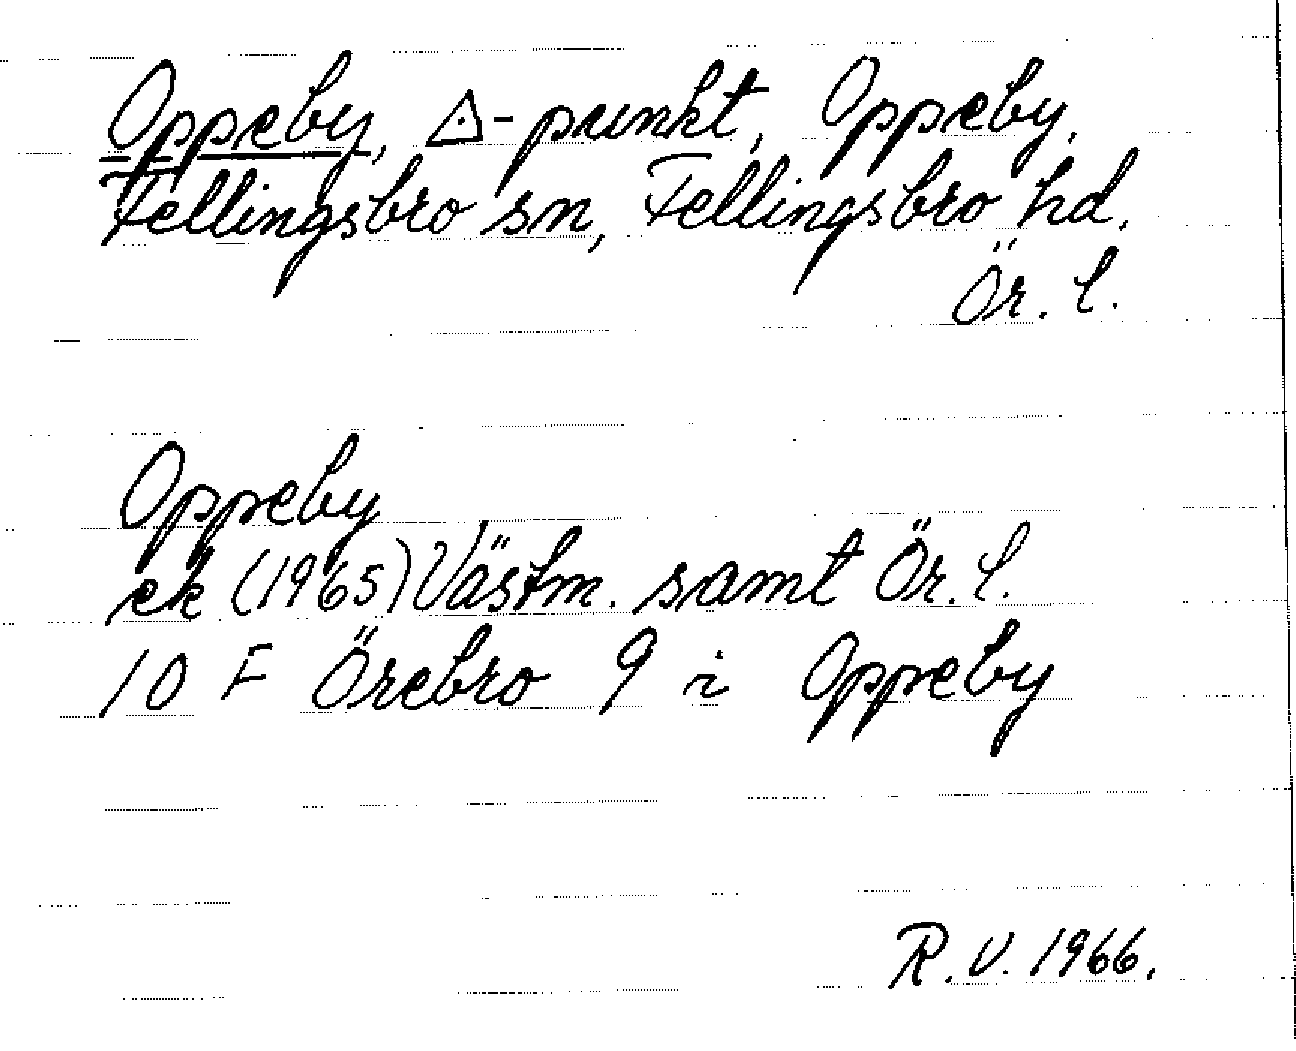 Oppeby, △-punkt, Oppeby,
Fellingsbro sn, Fellingsbro hd.
Ör. l.
Oppeby
ek (1965) Västm. samt Ör. l.
10 F Örebro 9 i Oppeby
R. V. 1966.